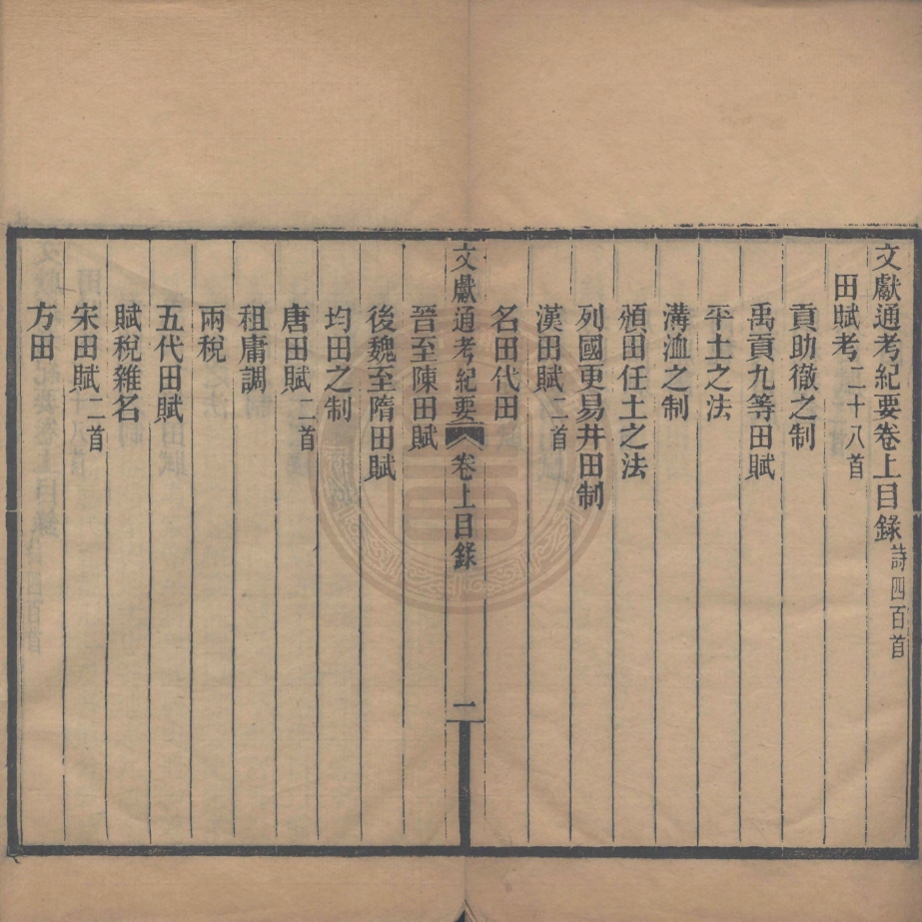 文獻通考紀要卷上目錄 詩四百首
田賦考二十八首
貢助徹之制
禹貢九等田賦
平土之法
溝洫之制
頒田任土之法
列國更易井田制
漢田賦二首
名田代田
文獻通考紀要 卷上目錄 一
晉至陳田賦
後魏至隋田賦
均田之制
唐田賦二首
租庸調
兩稅
五代田賦
賦稅雜名
宋田賦二首
方田